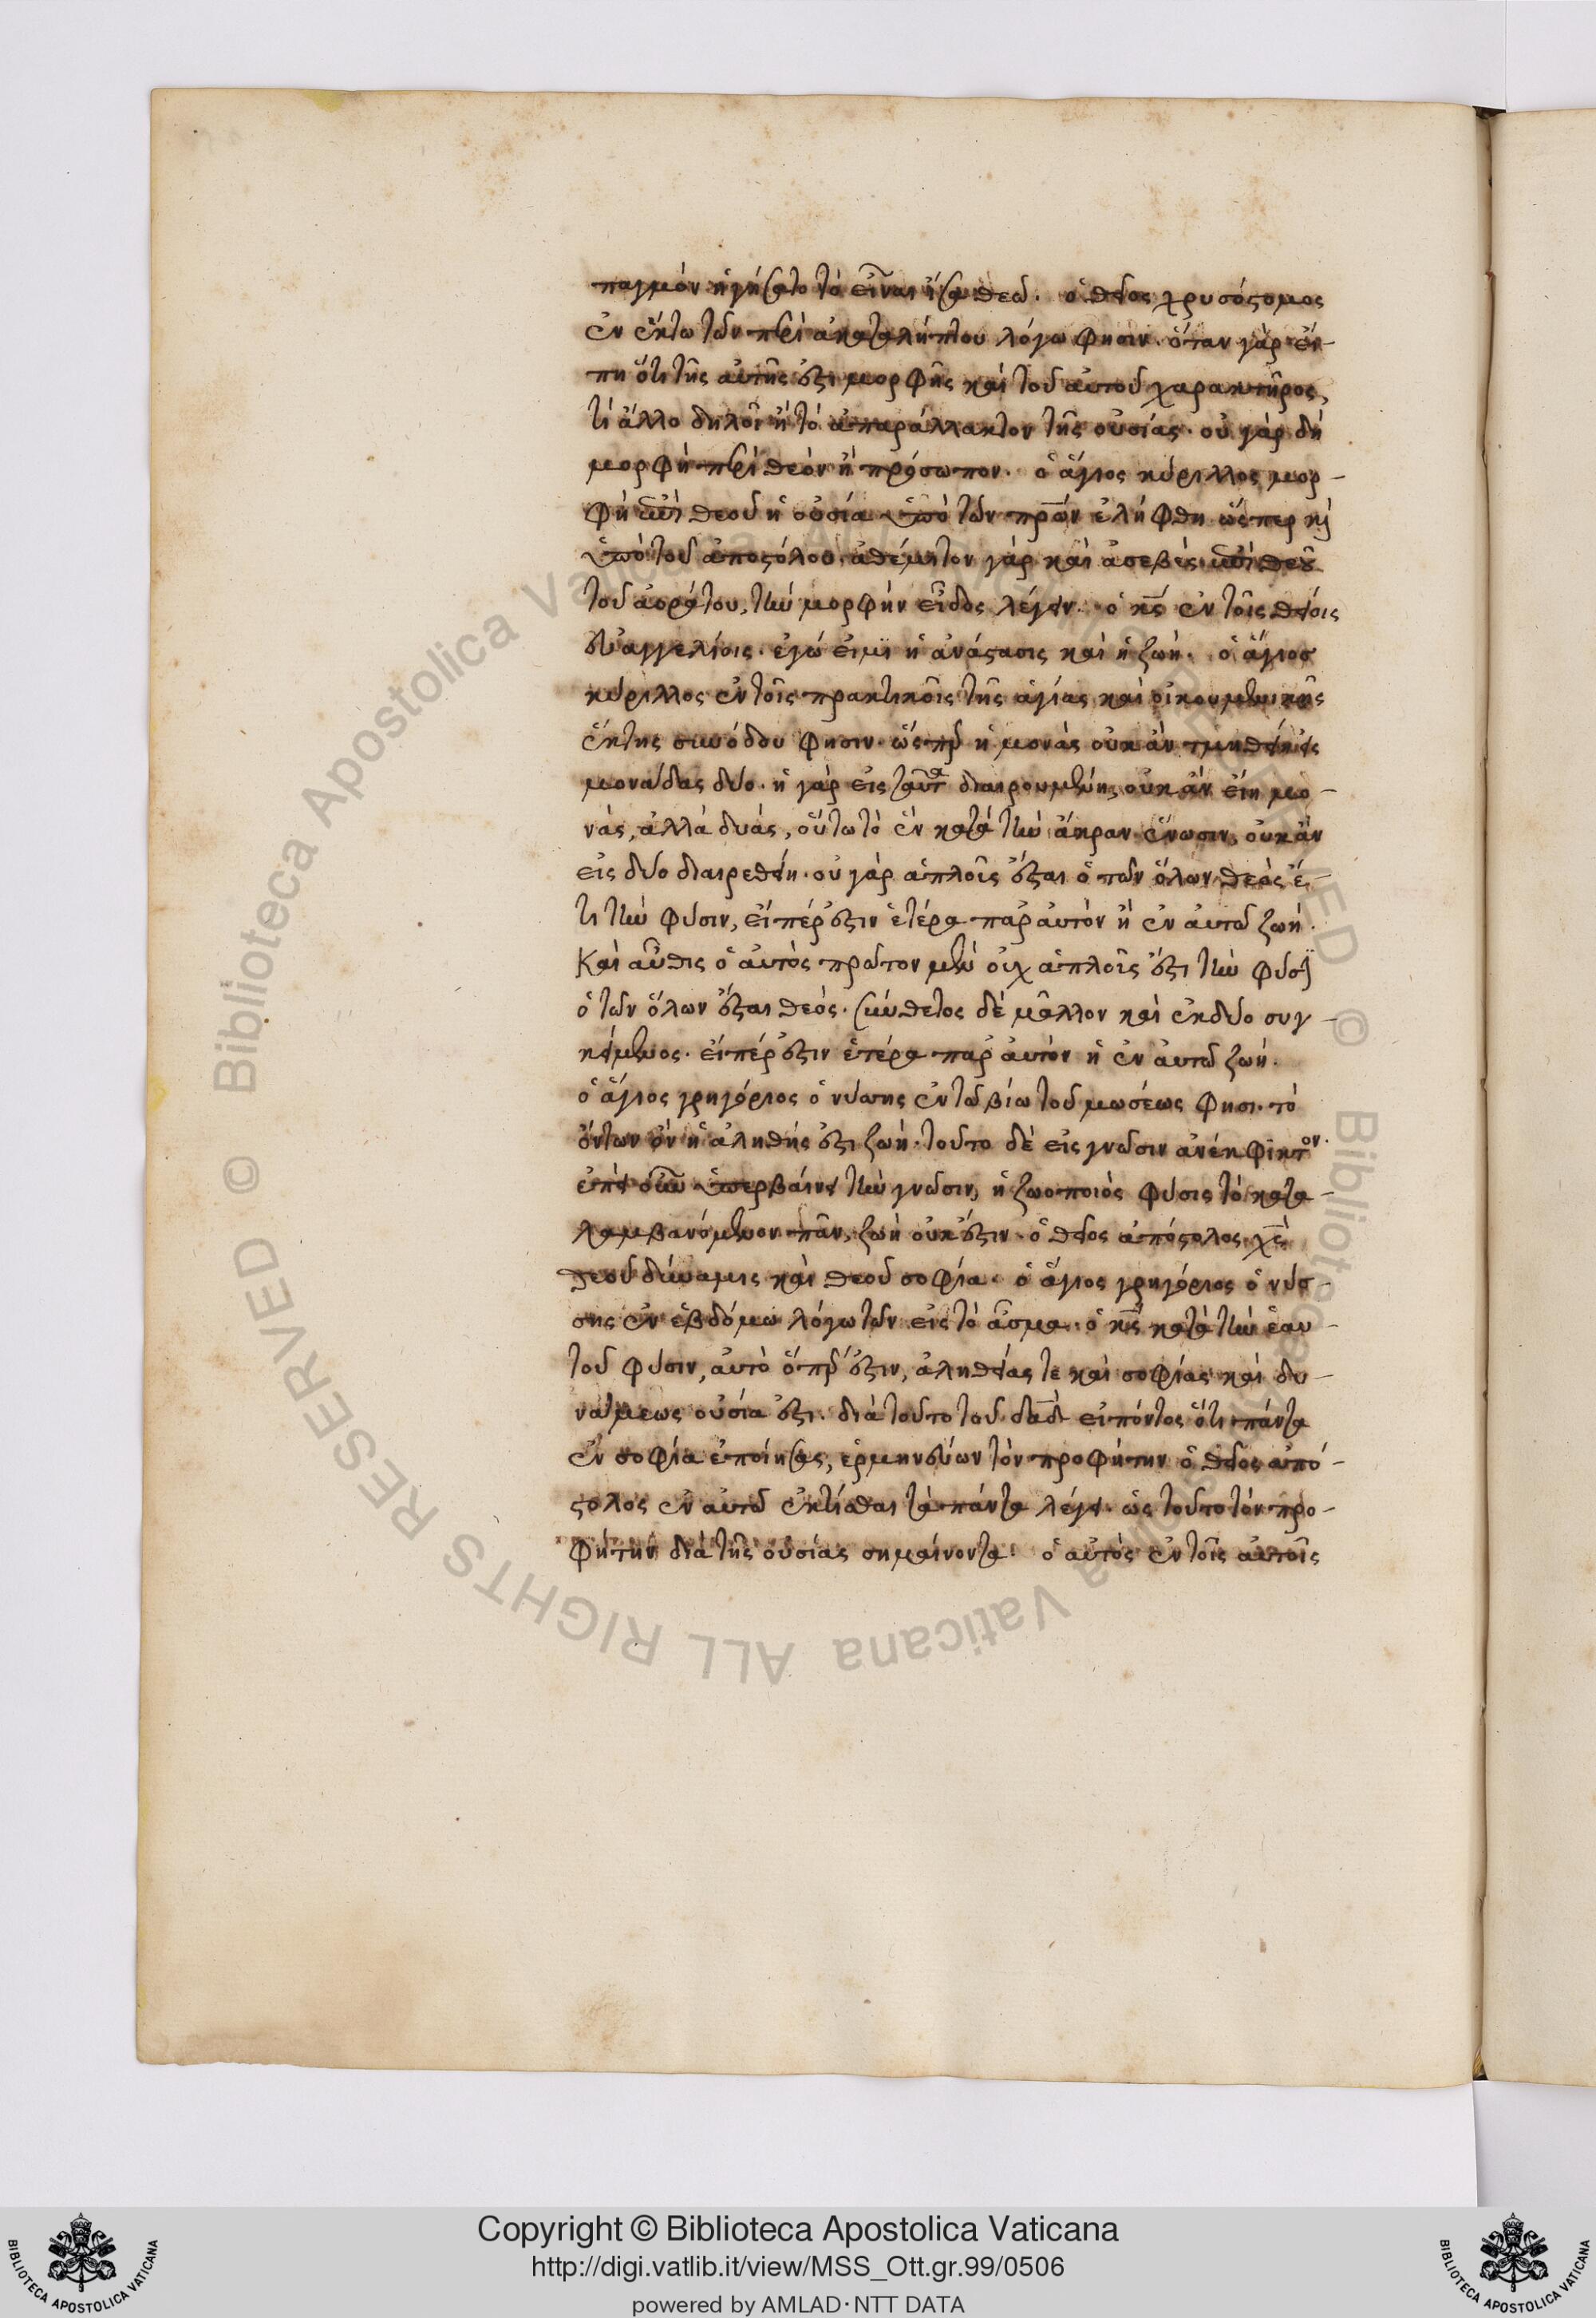 παγμὸν ἡγήσατο τὸ εἶναι ἴσα θεῶ. ὁ θεῖος χρυσόστομος
ἐν ἕκτω τῶν περὶ ἀκαταλήπτου λόγω φησιν. ὅταν γὰρ εἴ-
πη ὅτι τῆς αὐτῆς ἐστι μορφῆς καὶ τοῦ αὐτοῦ χαρακτῆρος,
τί ἄλλο δηλοῖ ἢ τὸ ἀπαράλλακτον τῆς οὐσίας. οὐ γὰρ δὴ
μορφὴ περὶ θεὸν ἢ πρόσωπον. ὁ ἅγιος κύριλλος μορ-
φὴ θεοῦ ἡ οὐσία ὑπὸ τῶν πρῶν ἐλήφθη ὥσπερ κὶ
ὑπὸ τοῦ ἀποστόλου. ἀθέμιτον γὰρ καὶ ἀσεβὲς ἐπὶ θεοῦ
τοῦ ἀοράτου, τὴν μορφὴν εἶδος λέγειν. ὁ κς ἐν τοῖς θείοις
εὐαγγελίοις. ἐγώ εἰμι ἡ ἀνάστασις καὶ ἡ ζωή. ὁ ἅγιος
κύριλλος ἐν τοῖς πρακτικοῖς τῆς ἁγίας καὶ οἰκουμενικῆς
ἕκτης συνόδου φησιν. ὥσπερ ἡ μονὰς οὐκ ἂν τμηθείη εἰς
μονάδας δύο. ἡ γὰρ εἰς ταῦτα διαιρουμένη, οὐκ ἂν εἴη μο-
νὰς, ἀλλὰ δυάς, οὕτω τὸ ἓν κατὰ τὴν ἄκραν ἕνωσιν, οὐκ ἂν
εἰς δύο διαιρεθείη. οὐ γὰρ ἁπλοῖς ἔσται ὁ τῶν ὅλων θεὸς ἔ-
τι τὴν φύσιν, εἴπέρ ἐστιν ἑτέρα παρ αὐτὸν ἢ ἐν αὐτῶ ζωή.
Καὶ αὖθις ὁ αὐτὸς πρῶτον μὲν οὐχ ἁπλοῖς ἐστι τὴν φύσιν
ὁ τῶν ὅλων ἔσται θεός. σύνθετος δὲ μᾶλλον καὶ ἐκ δύο συγ-
κείμενος. εἴπέρ ἐστιν ἑτέρα παρ αὐτὸν ἡ ἐν αὐτῶ ζωή.
ὁ ἅγιος γρηγόριος ὁ νύσσης ἐν τῶ βίω τοῦ μωσέως φησι. τὸ
ὄντων ὂν ἡ ἀληθής ἐστι ζωή. τοῦτο δὲ εἰς γνῶσιν ἀνέκφικτον.
ἐπεὶ οὖν ὑπερβαίνει τὴν γνῶσιν, ἡ ζωοποιὸς φύσις τὸ κατα-
λαμβανόμενον πᾶν, ζωὴ οὐκ ἔστιν. ὁ θεῖος ἀπόστολος χς
θεοῦ δύναμις καὶ θεοῦ σοφία. ὁ ἅγιος γρηγόριος ὁ νύσ-
σης ἐν ἑβδόμω λόγω τῶν εἰς τὸ ἆσμα. ὁ κς κατὰ τὴν ἑαυ-
τοῦ φύσιν, αὐτὸ ὅπερ ἐστιν, ἀληθείας τε καὶ σοφίας καὶ δυ-
νάμεως οὐσία ἐστι. διὰ τοῦτο τοῦ δαδ εἰπόντος ὅτι πάντα
ἐν σοφία ἐποίησας, ἑρμηνεύων τὸν προφήτην ὁ θεῖος ἀπό-
στολος ἐν αὐτῶ ἐκτίσθαι τὰ πάντα λέγει. ὡς τοῦτο τὸν προ-
φήτην διὰ τῆς οὐσίας σημαίνοντα. ὁ αὐτὸς ἐν τοῖς αὐτοῖς
© Biblioteca Apostolica Vaticana ALL RIGHTS RESERVED
Copyright © Biblioteca Apostolica Vaticana
http://digi.vatlib.it/view/MSS_Ott.gr.99/0506
powered by AMLAD·NTT DATA
BIBLIOTECA APOSTOLICA VATICANA
BIBLIOTECA APOSTOLICA VATICANA